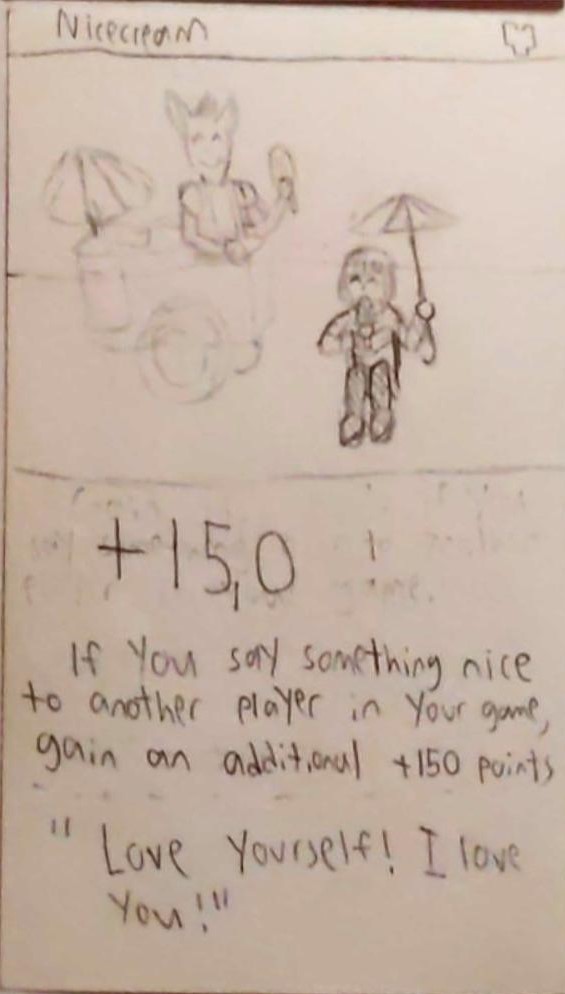 Nicecream
+15,0
If you say something nice
to another player in your game,
gain an additional +150 points
"Love yourself! I love
you!"